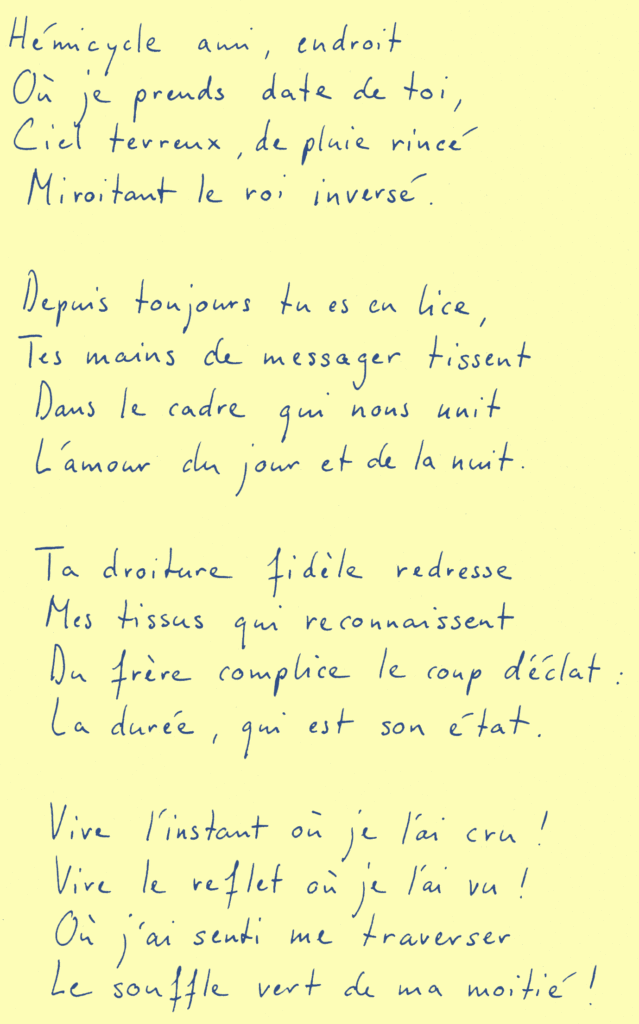 Hémicycle ami, endroit
Où je prends date de toi,
Ciel terreux, de pluie rincé
Miroitant le roi inversé.
Depuis toujours tu es en lice,
Tes mains de messager tissent
Dans le cadre qui nous unit
L'amour du jour et de la nuit.
Ta droiture fidèle redresse
Mes tissus qui reconnaissent
Du frère complice le coup d'éclat :
La durée, qui est son état.
Vive l'instant où je l'ai cru !
Vive le reflet où je l'ai vu !
Où j'ai senti me traverser
Le souffle vert de ma moitié !